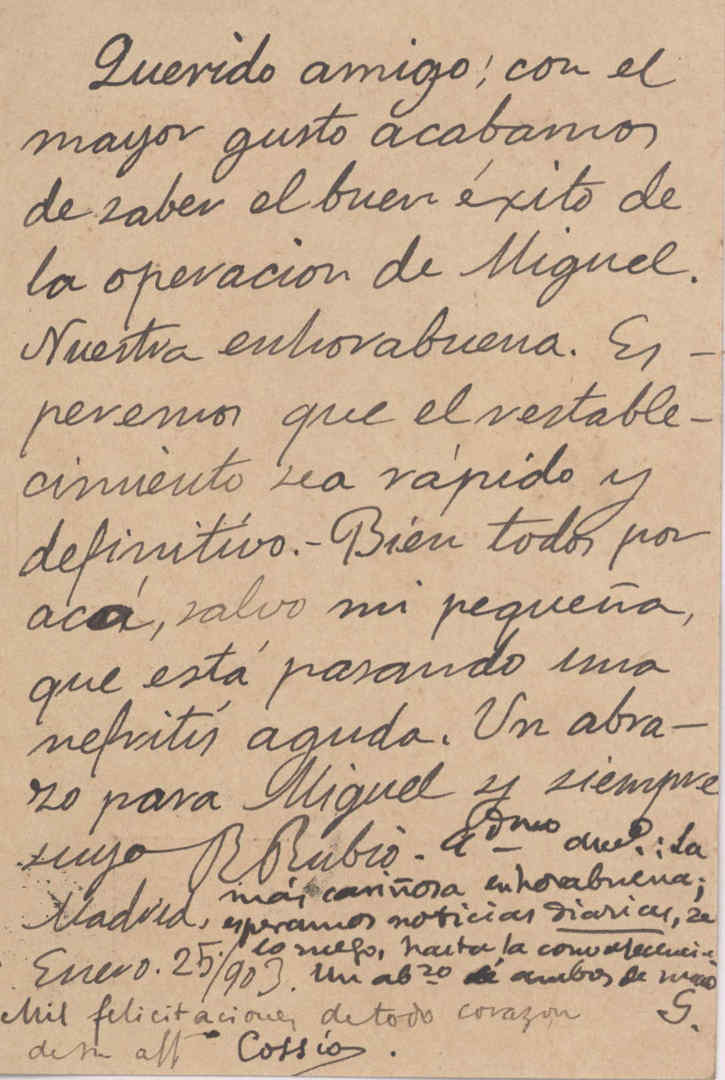 Querido amigo; con el
mayor gusto acabamos
de saber el buen éxito de
la operacion de Miguel.
Nuestra enhorabuena. Es-
peremos que el restable-
cimiento sea rápido y
definitivo.- Bien todos por
acá, salvo mi pequeña,
que está pasando una
nefritis aguda. Un abra-
zo para Miguel y siempre
suyo R Rubio.
Madrid,
Enero. 25/903.
Qdmo : La
más cariñosa enhorabuena;
esperamos noticias diarias, se
lo ruego, hasta la convalecencia
Un abzo de ambos de
G.
Mil felicitaciones de todo corazon
de su afº Cossío.